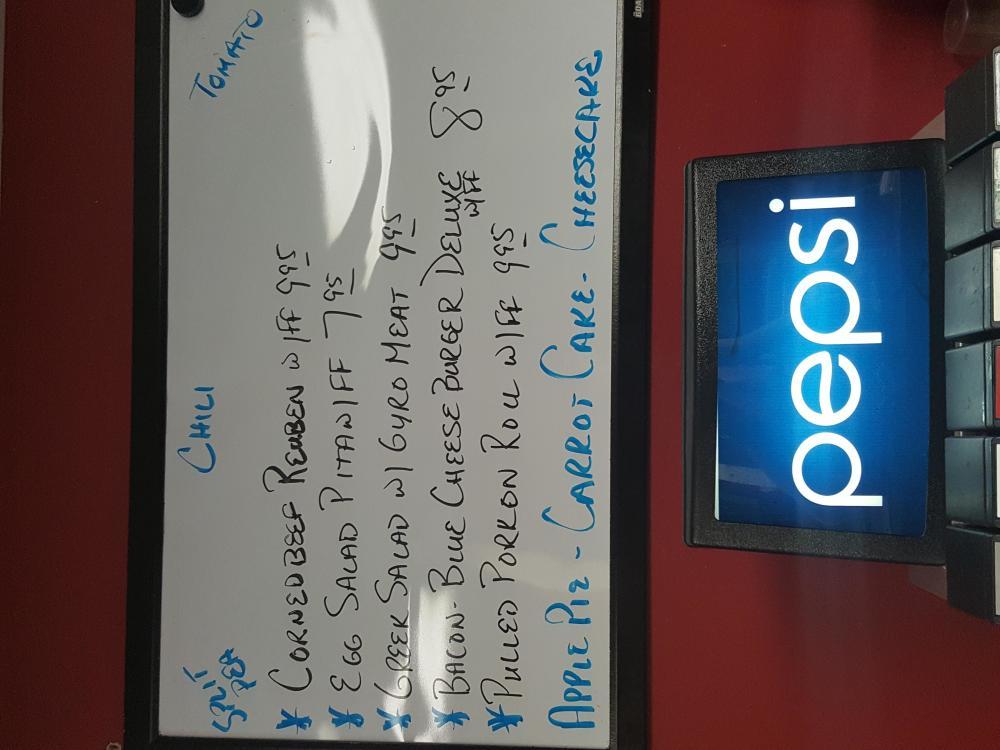 SPLIT PEA CHILI TOMATO
* CORNED BEEF REUBEN W/FF 9.95
* EGG SALAD PITA W/FF 7.95
* GREEK SALAD W/ GYRO MEAT 9.95
* BACON - BLUE CHEESE BURGER DELUXE W/FF 8.95
* PULLED PORK ON ROLL W/FF 9.95
APPLE PIE - CARROT CAKE - CHEESECAKE
pepsi